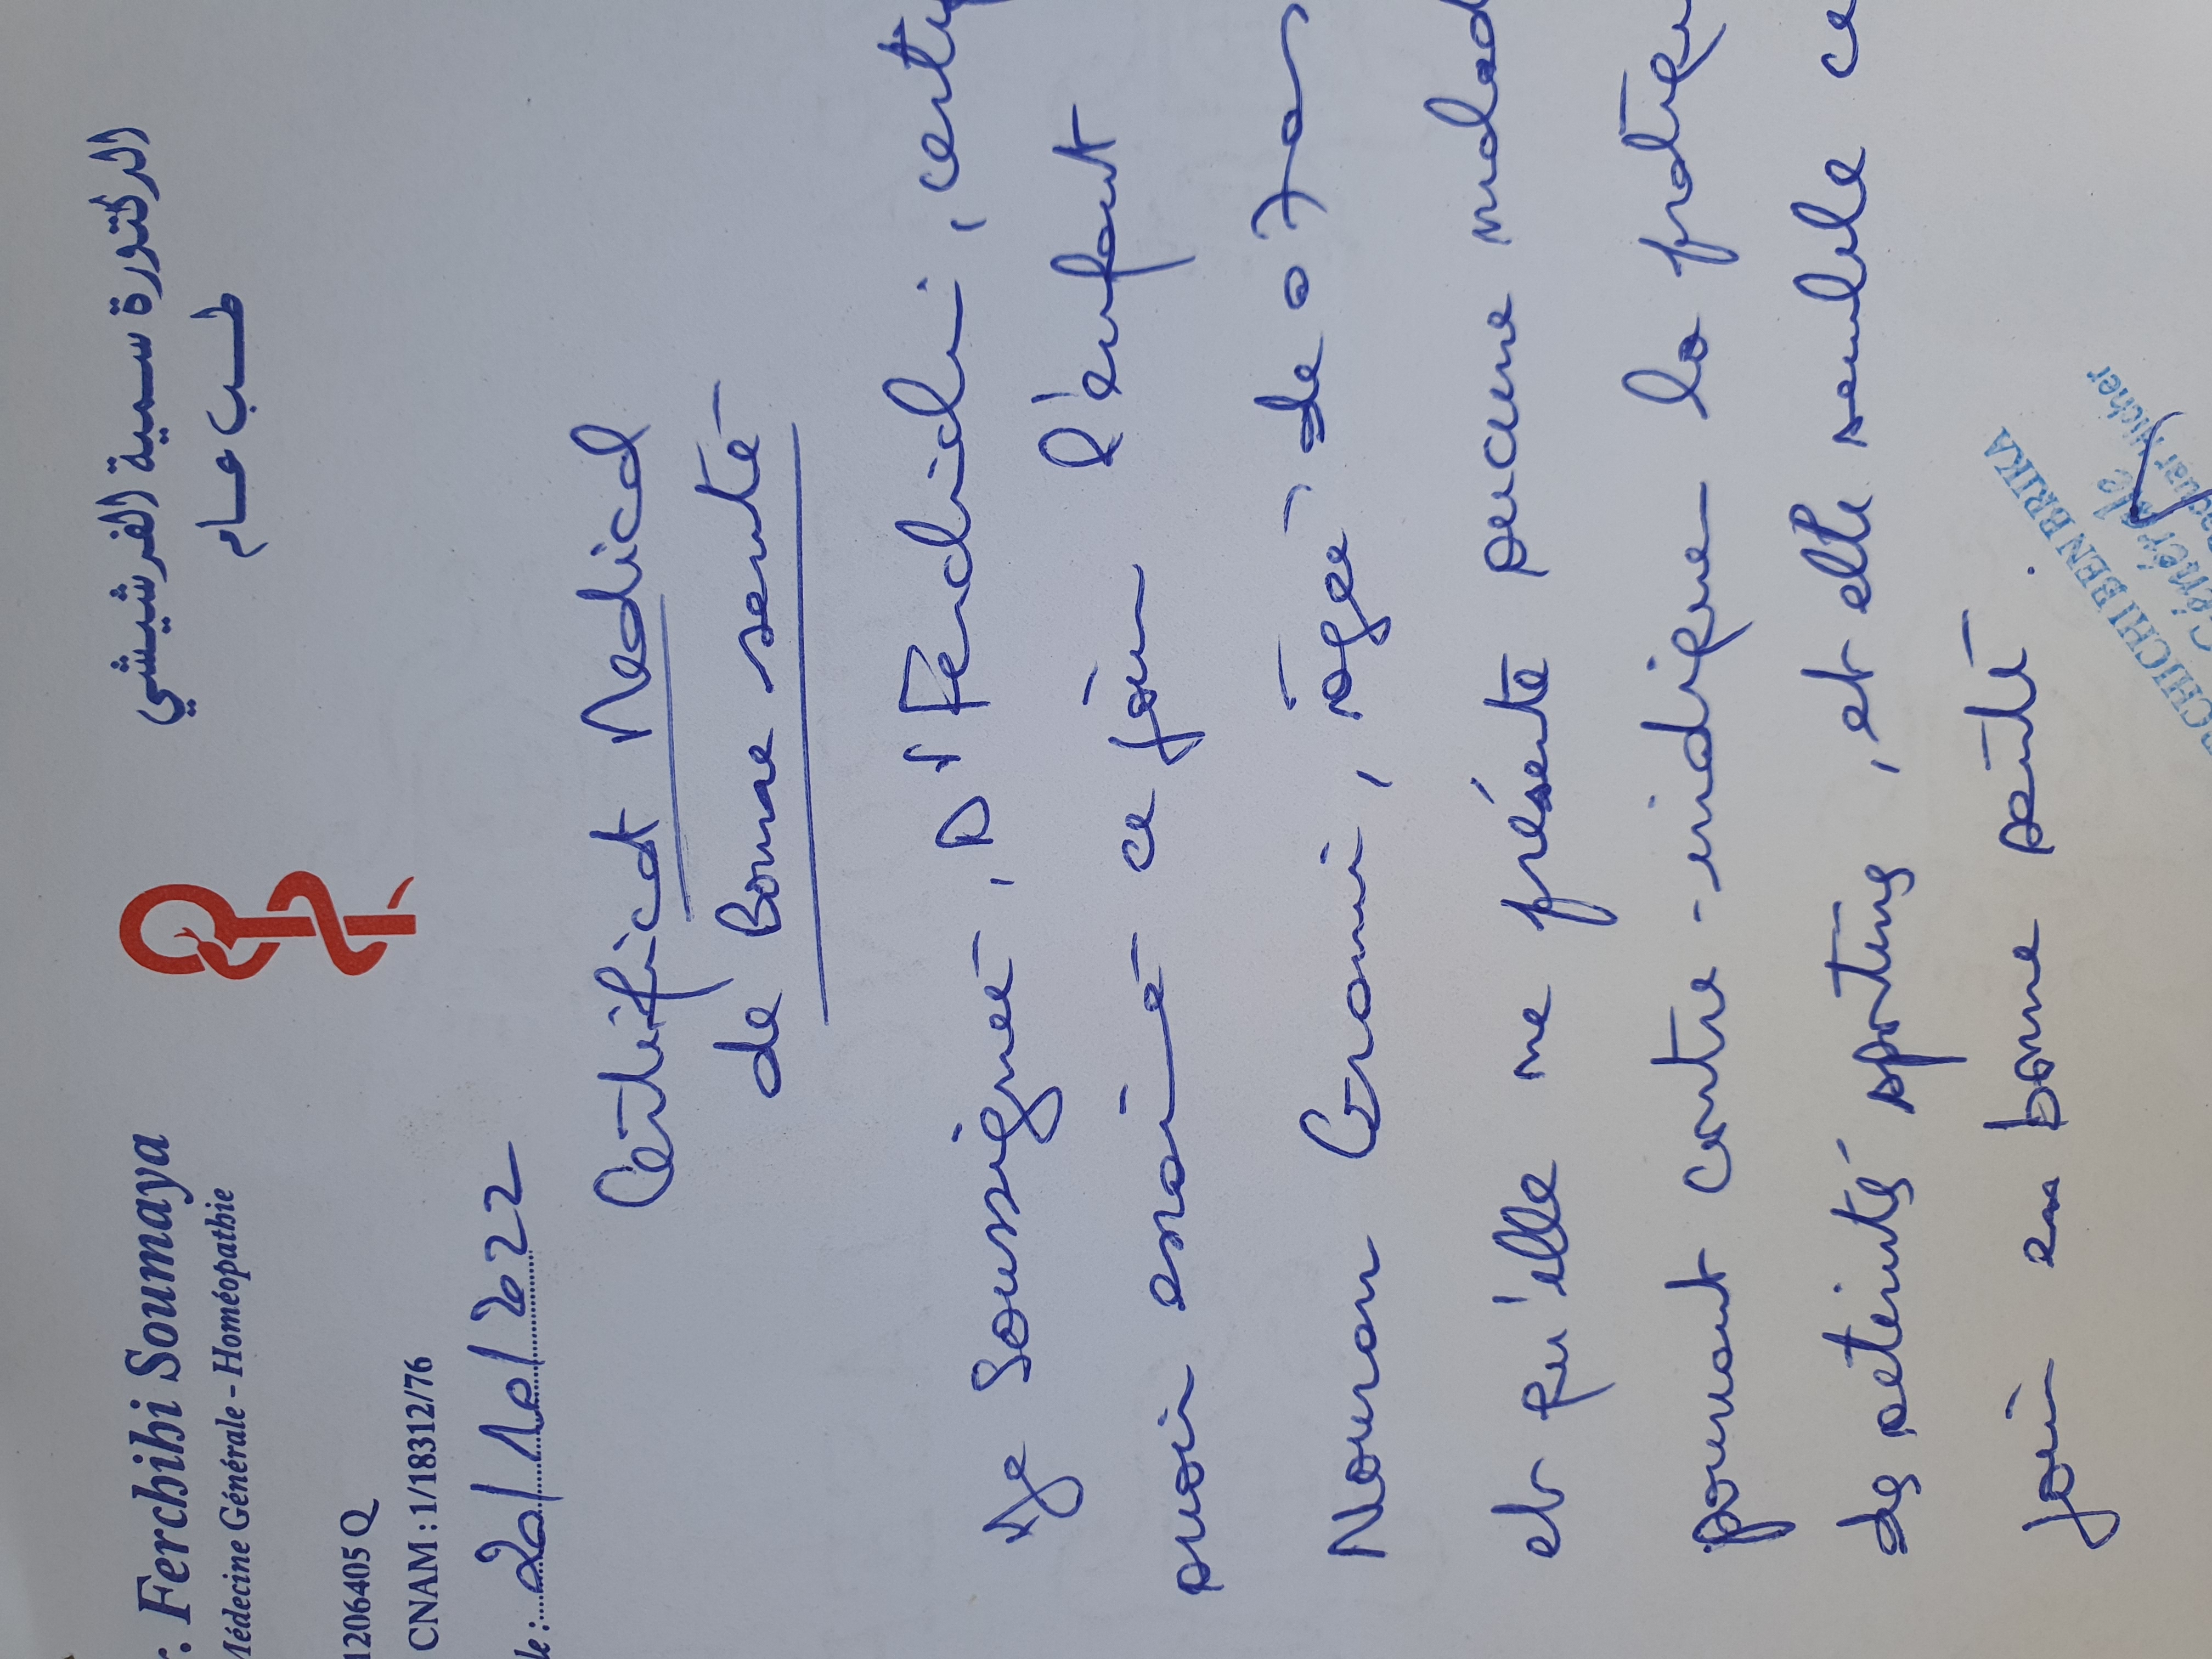 Ferchihi Soumaya
الدكتورة سمية الفرشيشي
Médecine Générale - Homéopathie
طب عام
1206405 Q
CNAM : 1/18312/76
le : 20/10/2022
Certificat Médical
de Bonne santé
Je Soussignée, Dr Ferchichi, certif
avoir examiné ce jour l'enfant
Nouran Grami, âgée de 07 an
et qu'elle ne présente aucune malad
pouvant contre-indiquer la pratiqu
des activités sportives, et elle semble ce
jour en bonne santé.
CHICHI BEN BRIKA
Générale